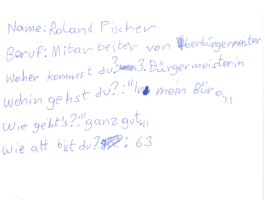 Name: Roland Fischer
Beruf: Mitarbeiter von Oberbürgermeister
Woher kommst du?: 3. Bürgermeisterin
Wohin gehst du?: "In mein Büro"
Wie geht's?: "ganz gut"
Wie alt bist du?: 63